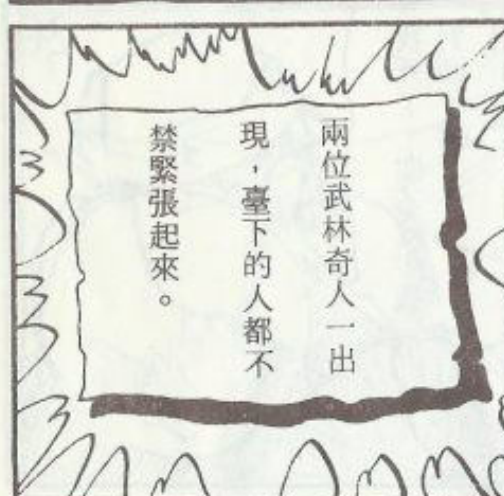 兩位武林奇人一出
現，臺下的人都不
禁緊張起來。